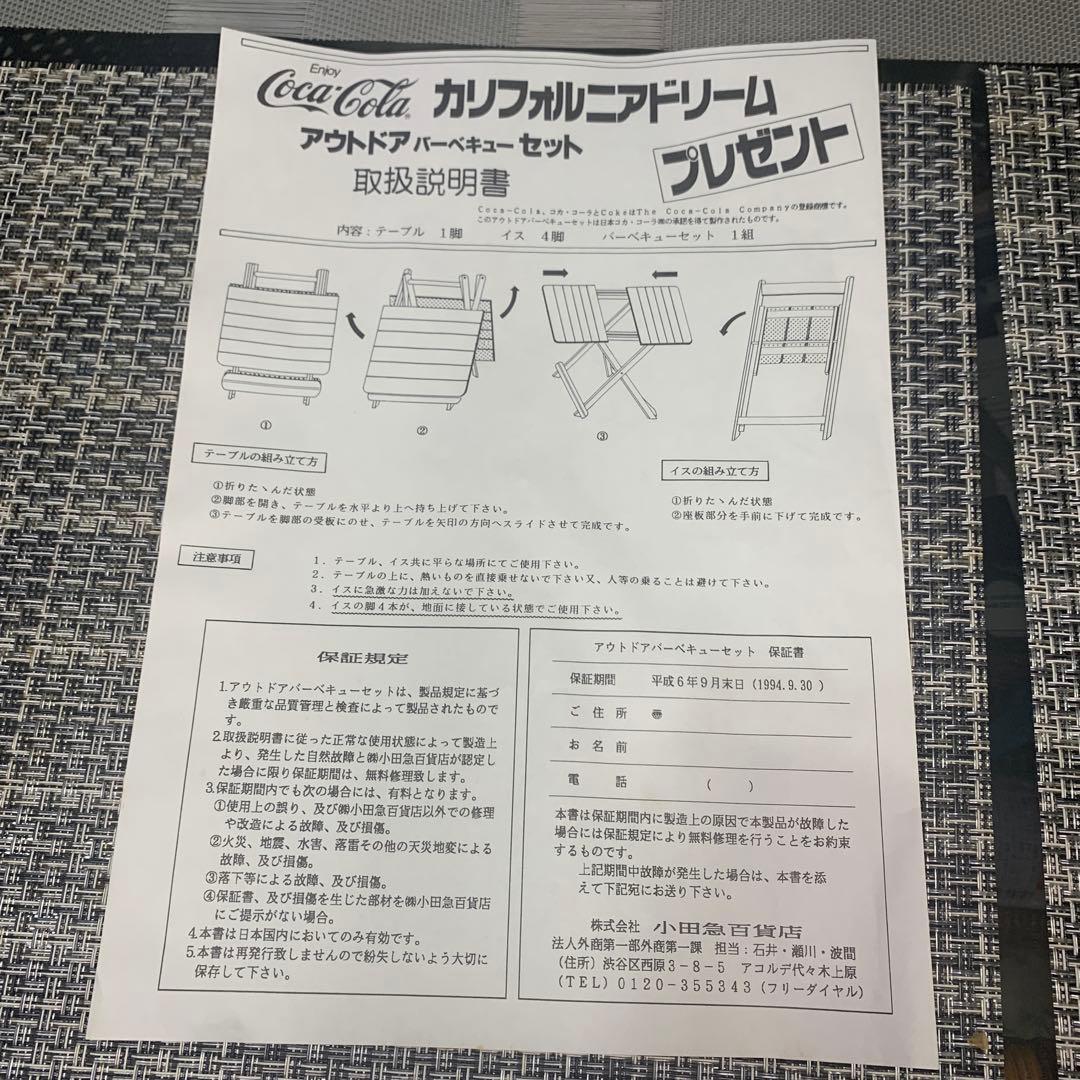 Enjoy
Coca-Cola® カリフォルニアドリーム
アウトドア バーベキュー セット
プレゼント
取扱説明書
Coca-Cola、コカ・コーラとCokeはThe Coca-Cola Companyの登録商標です。
このアウトドアバーベキューセットは日本コカ・コーラ㈱の承諾を得て製作されたものです。
内容：テーブル 1脚 イス 4脚 バーベキューセット 1組
① ② ③
テーブルの組み立て方
①折りたゝんだ状態
②脚部を開き、テーブルを水平より上へ持ち上げて下さい。
③テーブルを脚部の受板にのせ、テーブルを矢印の方向へスライドさせて完成です。
イスの組み立て方
①折りたゝんだ状態
②座板部分を手前に下げて完成です。
注意事項
1．テーブル、イス共に平らな場所にてご使用下さい。
2．テーブルの上に、熱いものを直接乗せないで下さい又、人等の乗ることは避けて下さい。
3．イスに急激な力は加えないで下さい。
4．イスの脚4本が、地面に接している状態でご使用下さい。
保証規定
1.アウトドアバーベキューセットは、製品規定に基づ
き厳重な品質管理と検査によって製品されたもので
す。
2.取扱説明書に従った正常な使用状態によって製造上
より、発生した自然故障と㈱小田急百貨店が認定し
た場合に限り保証期間は、無料修理致します。
3.保証期間内でも次の場合には、有料となります。
①使用上の誤り、及び㈱小田急百貨店以外での修理
や改造による故障、及び損傷。
②火災、地震、水害、落雷その他の天災地変による
故障、及び損傷。
③落下等による故障、及び損傷。
④保証書、及び損傷を生じた部材を㈱小田急百貨店
にご提示がない場合。
4.本書は日本国内においてのみ有効です。
5.本書は再発行致しませんので紛失しないよう大切に
保存して下さい。
アウトドアバーベキューセット 保証書
保証期間 平成6年9月末日（1994.9.30）
ご住所 〠
お名前
電話 （ ）
本書は保証期間内に製造上の原因で本製品が故障した
場合には保証規定により無料修理を行うことをお約束
するものです。
上記期間中故障が発生した場合は、本書を添
えて下記宛にお送り下さい。
株式会社 小田急百貨店
法人外商第一部外商第一課 担当：石井・瀬川・波間
（住所）渋谷区西原3－8－5 アコルデ代々木上原
（TEL）0120－355343（フリーダイヤル）